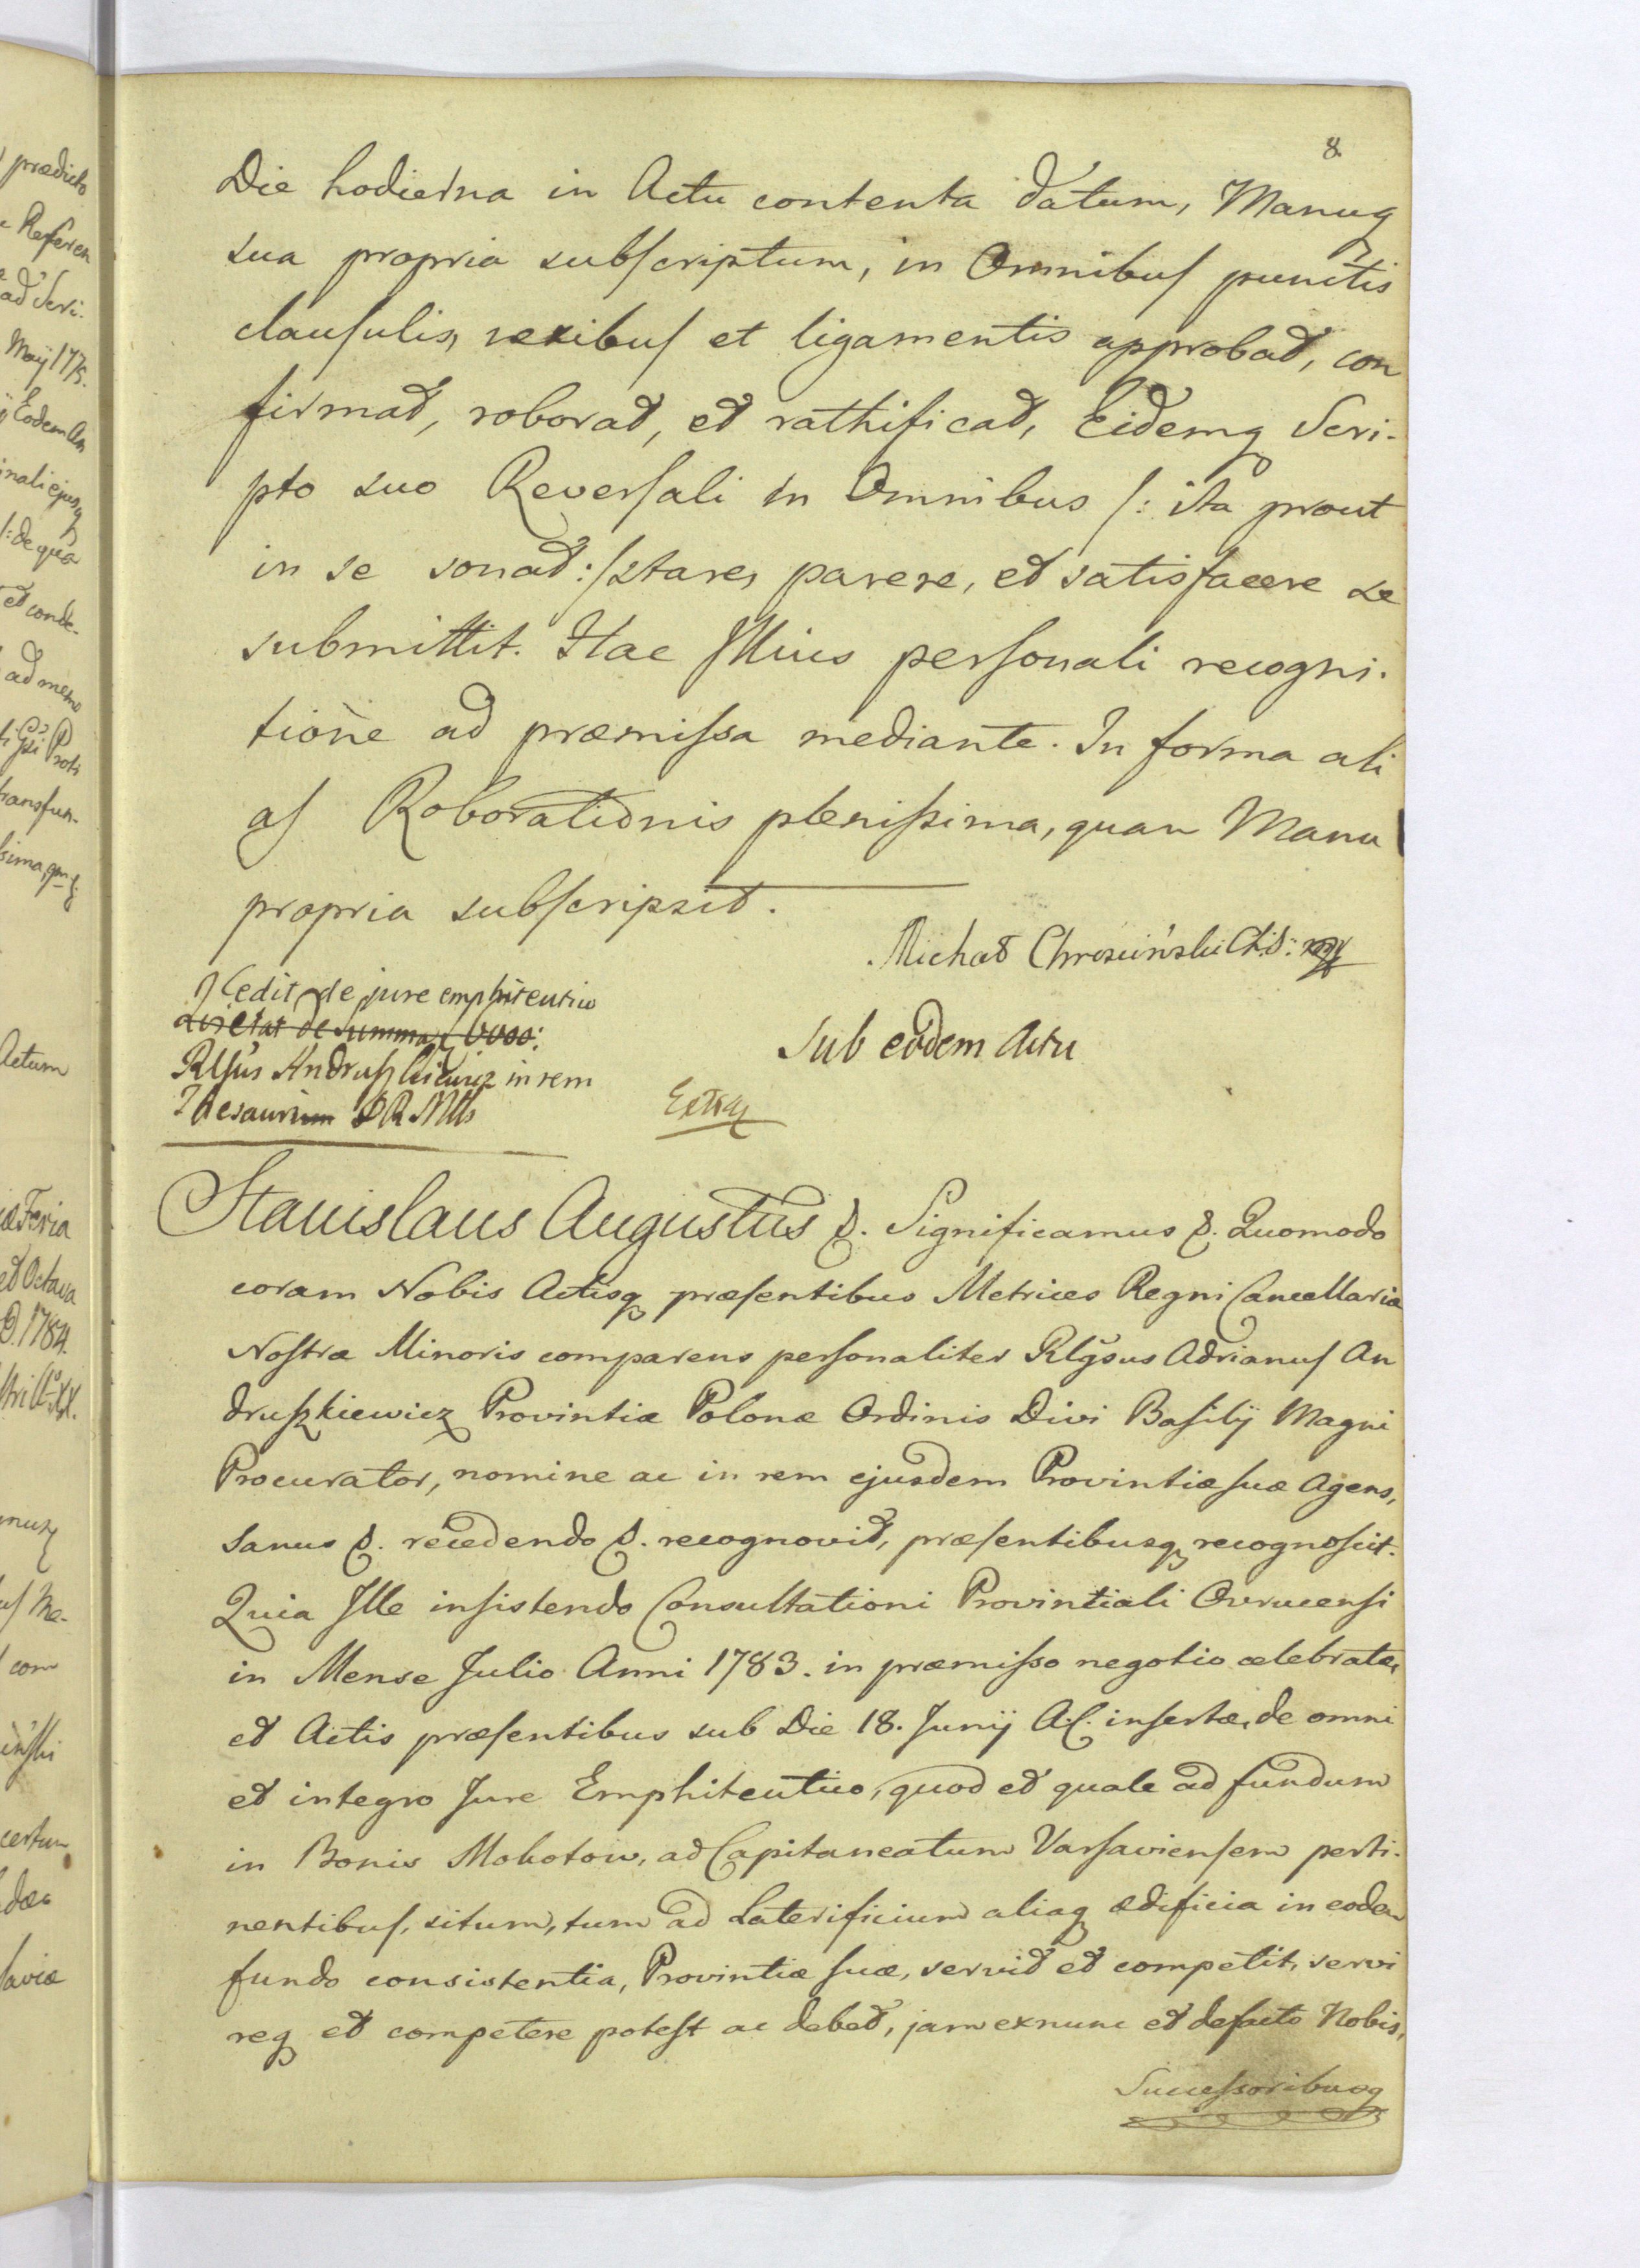 8
Die hodierna in Actu contenta datum, Manuq
sua propria subscriptum, in Omnibus punctis
clausulis, nexibus et ligamentis approbat, con
firmat, roborat, et rathificat, Eidemq Scri-
pto suo Reversali in Omnibus /: ita prout
in se sonat :/ stare, parere, et satisfacere se
submittit. Hac Illius personali recogni-
tione ad præmissa mediante. In forma ali
as Roborationis plenissima, quam Manu
propria subscripsit.
Michał Chrościński Ch:S:
Cedit de jure emphiteutico
de summa 6000:
Rlgsus Andruszkiewicz in rem
Thesaurium SRMtis
Sub eodem Actu
Extra
Stanislaus Augustus &. Significamus &. Quomodo
coram Nobis Actisq præsentibus Metrices Regni Cancellariæ
Nostræ Minoris comparens personaliter Rlgsus Adrianus An
druszkiewicz Provintiæ Polonæ Ordinis Divi Basilij Magni
Procurator, nomine ac in rem ejusdem Provintiæ suæ Agens,
Sanus &. recedendo &. recognovit, præsentibusq recognoscit.
Quia Ille insistendo Consultationi Provintiali Ovrucensi
in Mense Julio Anni 1783. in præmisso negotio celebratæ,
et Actis præsentibus sub Die 18. Junij A.C. insertæ, de omni
et integro Jure Emphiteutico, quod et quale ad fundum
in Bonis Mokotow, ad Capitaneatum Varsaviensem perti-
nentibus, situm, tum ad Laterificium aliaq ædificia in eodem
fundo consistentia, Provintiæ suæ, servit et competit, servi
req et competere potest ac debet, jam exnunc et defacto Nobis,
Successoribusq